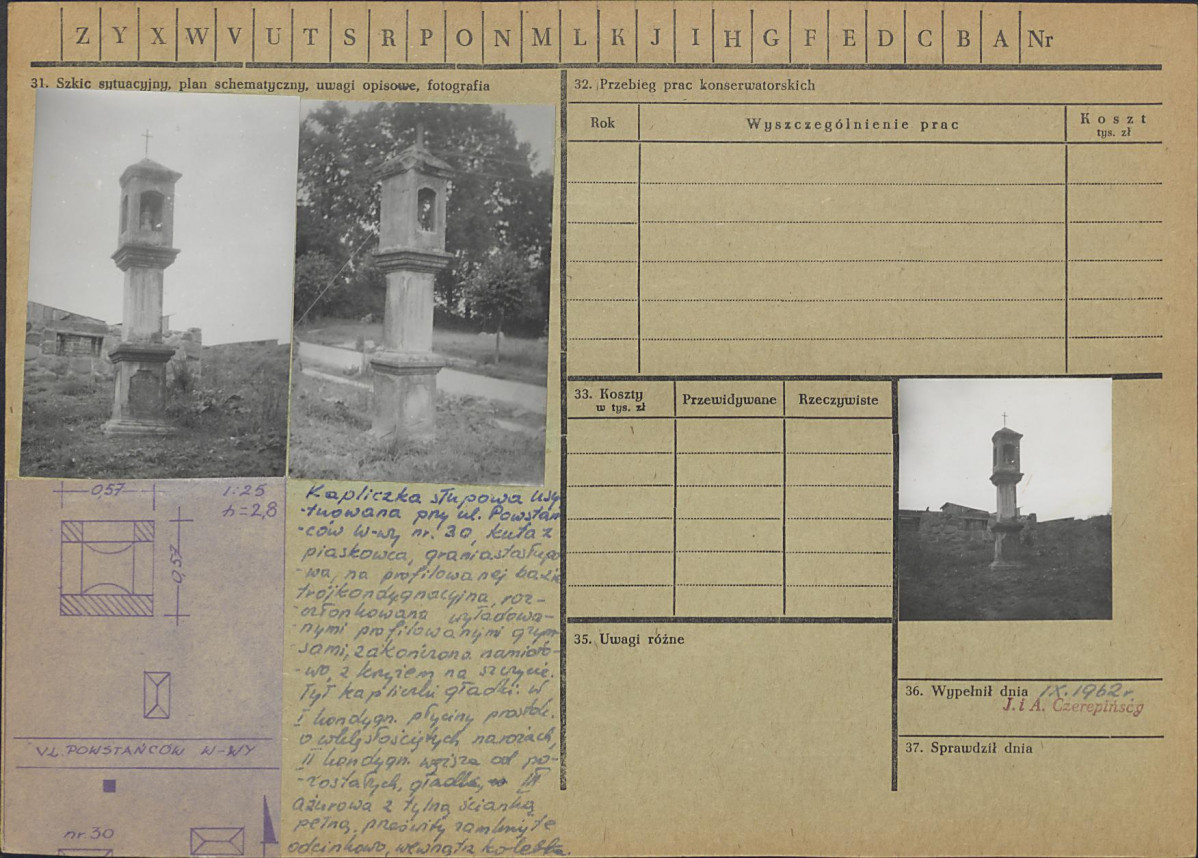 Z Y X W V U T S R P O N M L K J I H G F E D C B A Nr
31. Szkic sytuacyjny, plan schematyczny, uwagi opisowe, fotografia
0,57
1:25
h=2,8
0,57
UL. POWSTAŃCÓW W-WY
nr. 30
Kapliczka słupowa usy
-tuowana przy ul. Powstań
-ców W-wy nr. 30, kuta z
piaskowca, graniastosłupo
-wa, na profilowanej bazie
trójkondygnacyjna, roz-
-członkowana wyładowa-
-nymi profilowanymi gzym
-sami, zakończona namioto-
-wo, z krzyżem na szczycie.
Tył kapliczki gładki. W
I kondygn. płyciny prostok.
o wklęsłościętych narożach,
II kondygn. węższa od po-
-zostałych, gładka, III
ażurowa z tylną ścianką
pełną, prześwity zamknięte
odcinkowo, wewnątrz kolebka.
32. Przebieg prac konserwatorskich
Rok
Wyszczególnienie prac
Koszt
tys. zł
33. Koszty
w tys. zł
Przewidywane
Rzeczywiste
35. Uwagi różne
36. Wypełnił dnia IX. 1962 r.
J. i A. Czerepińscy
37. Sprawdził dnia